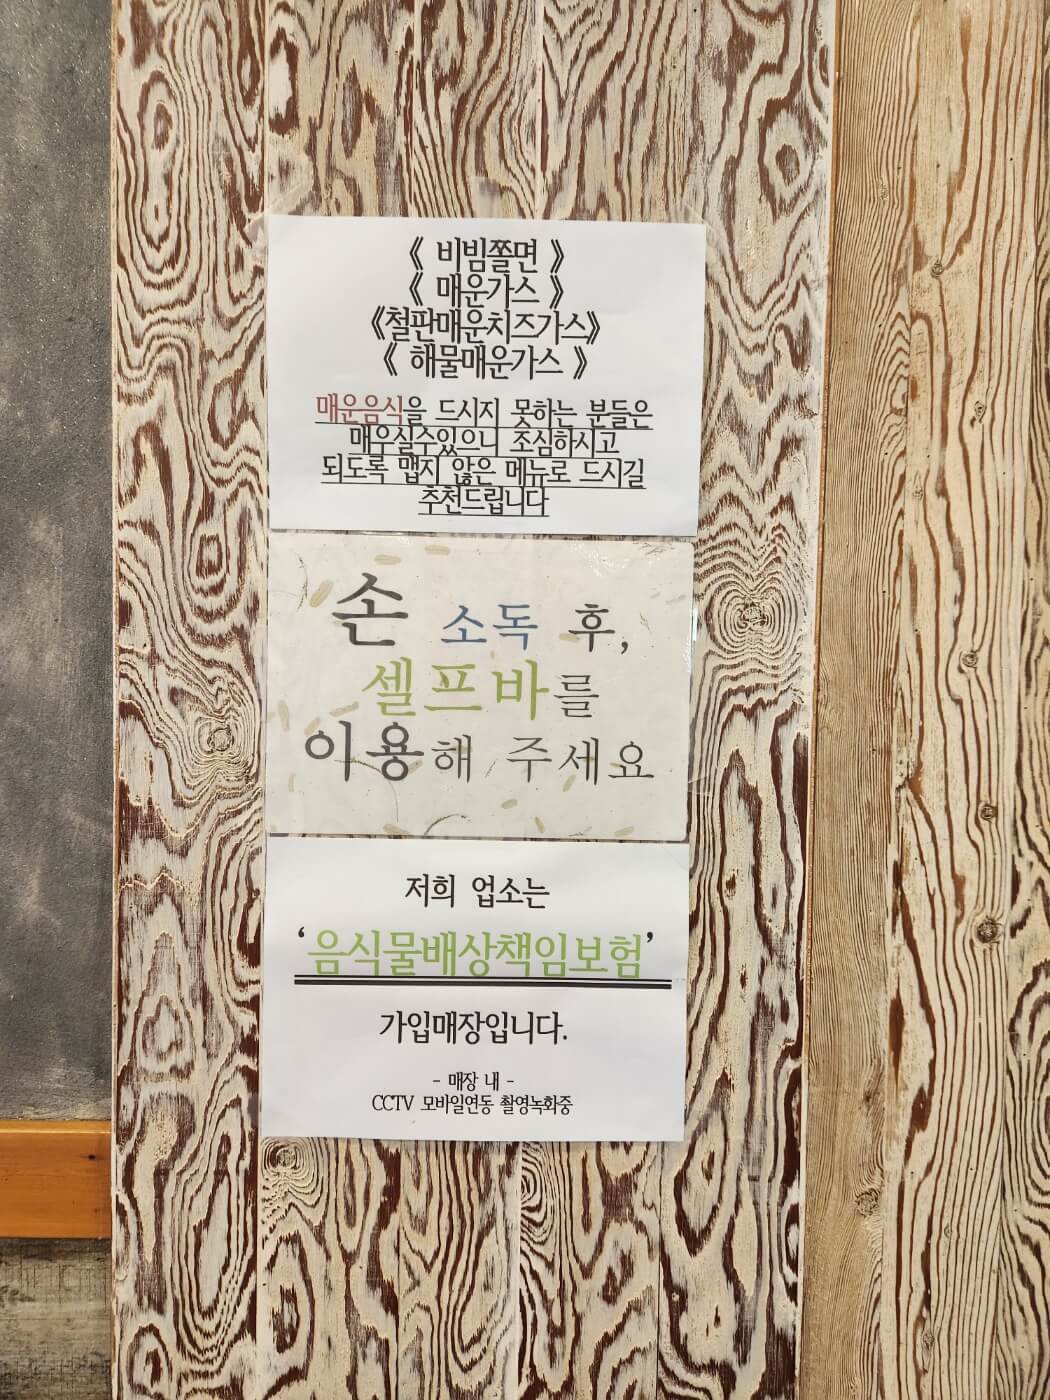 《 비빔쫄면 》
《 매운가스 》
《철판매운치즈가스》
《 해물매운가스 》
매운음식을 드시지 못하는 분들은
매우실수있으니 조심하시고
되도록 맵지 않은 메뉴로 드시길
추천드립니다
손 소독 후,
셀프바를
이용해 주세요
저희 업소는
‘음식물배상책임보험’
가입매장입니다.
- 매장 내 -
CCTV 모바일연동 촬영녹화중